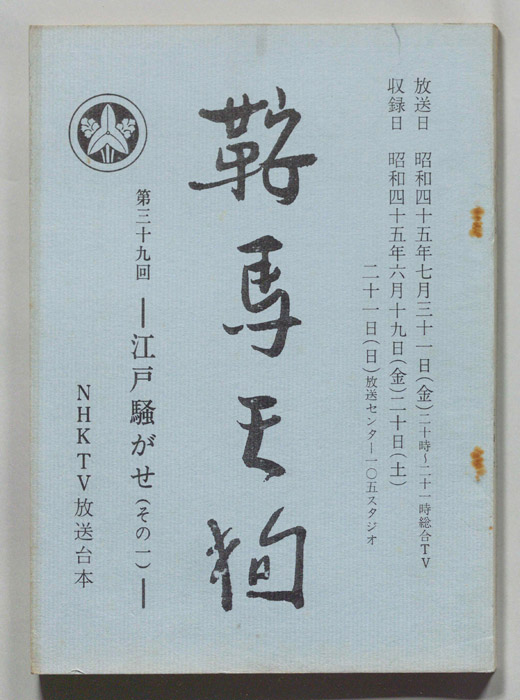 放送日　昭和四十五年七月三十一日（金）二十時〜二十一時総合TV
収録日　昭和四十五年六月十九日（金）二十日（土）
二十一日（日）放送センター一〇五スタジオ
鞍馬天狗
第三十九回　―江戸騒がせ（その一）―
NHKTV放送台本